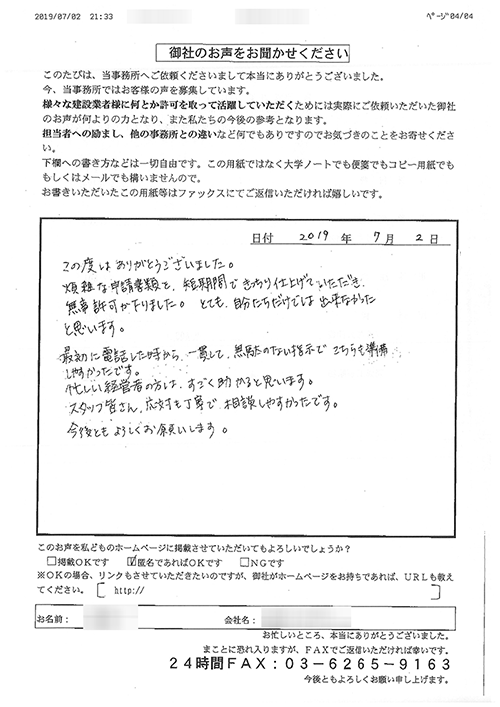 2019/07/02 21:33 ﾍﾟｰｼﾞ04/04
御社のお声をお聞かせください
このたびは、当事務所へご依頼くださいまして本当にありがとうございました。
今、当事務所ではお客様の声を募集しています。
様々な建設業者様に何とか許可を取って活躍していただくためには実際にご依頼いただいた御社
のお声が何よりの力となり、また私たちの今後の参考となります。
担当者への励まし、他の事務所との違いなど何でもありですのでお気づきのことをお寄せくださ
い。
下欄への書き方などは一切自由です。この用紙ではなく大学ノートでも便箋でもコピー用紙でも
もしくはメールでも構いませんので、
お書きいただいたこの用紙等はファックスにてご返信いただければ嬉しいです。
日付 2019 年 7 月 2 日
この度はありがとうございました。
煩雑な申請書類を、短期間できっちり仕上げていただき、
無事許可が下りました。とても、自分たちだけでは出来なかった
と思います。
最初に電話した時から、一貫して、無駄のない指示でこちらも準備
しやすかったです。
忙しい経営者の方は、すごく助かると思います。
スタッフ皆さん、応対も丁寧で相談しやすかったです。
今後ともよろしくお願いします。
このお声を私どものホームページに掲載させていただいてもよろしいでしょうか？
□掲載OKです ☑匿名であればOKです □NGです
※OKの場合、リンクもさせていただきたいのですが、御社がホームページをお持ちであれば、URLも教え
てください。［ http:// ］
お名前： 会社名：
お忙しいところ、本当にありがとうございました。
まことに恐れ入りますが、FAXでご返信いただければ幸いです。
24時間FAX：03－6265－9163
今後ともよろしくお願い申し上げます。